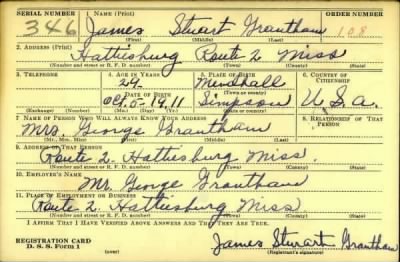 SERIAL NUMBER 1. NAME (Print) ORDER NUMBER
346 James Stuart Grantham 108
(First) (Middle) (Last)
2. ADDRESS (Print)
Hattisburg Route 2 Miss
(Number and street or R. F. D. number) (Town) (County) (State)
3. TELEPHONE 4. AGE IN YEARS 5. PLACE OF BIRTH 6. COUNTRY OF CITIZENSHIP
29 Mendhall
DATE OF BIRTH (Town or county)
Oct. 5 - 1911 Simpson U.S.a.
(Exchange) (Number) (Mo.) (Day) (Yr.) (State or country)
7. NAME OF PERSON WHO WILL ALWAYS KNOW YOUR ADDRESS 8. RELATIONSHIP OF THAT PERSON
Mrs. George Grantham
(Mr., Mrs., Miss) (First) (Middle) (Last)
9. ADDRESS OF THAT PERSON
Route 2. Hattiesburg Miss.
(Number and street or R. F. D. number) (Town) (County) (State)
10. EMPLOYER'S NAME
Mr. George Grantham
11. PLACE OF EMPLOYMENT OR BUSINESS
Route 2. Hattiesburg Miss
(Number and street or R. F. D. number) (Town) (County) (State)
I AFFIRM THAT I HAVE VERIFIED ABOVE ANSWERS AND THAT THEY ARE TRUE.
REGISTRATION CARD
D. S. S. FORM 1 (over) James Stuart Grantham
(Registrant's signature)